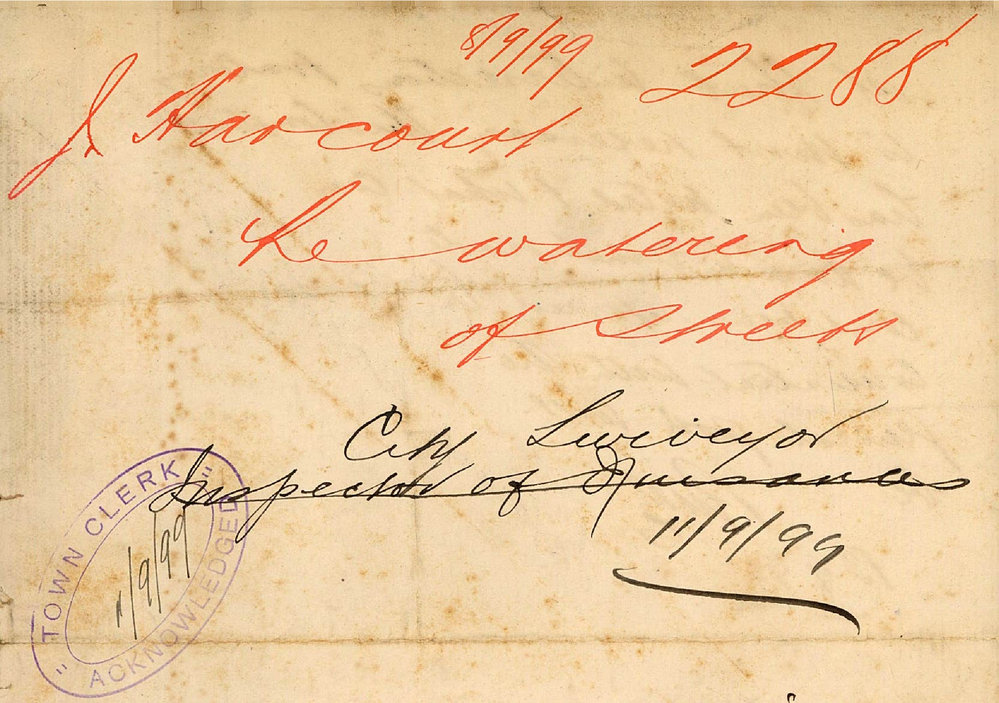 8/9/99 2288
J. Harcourt
Re watering
of Streets
City Surveyor
Inspector of Nuisances
11/9/99
"TOWN CLERK"
11/9/99
ACKNOWLEDGED